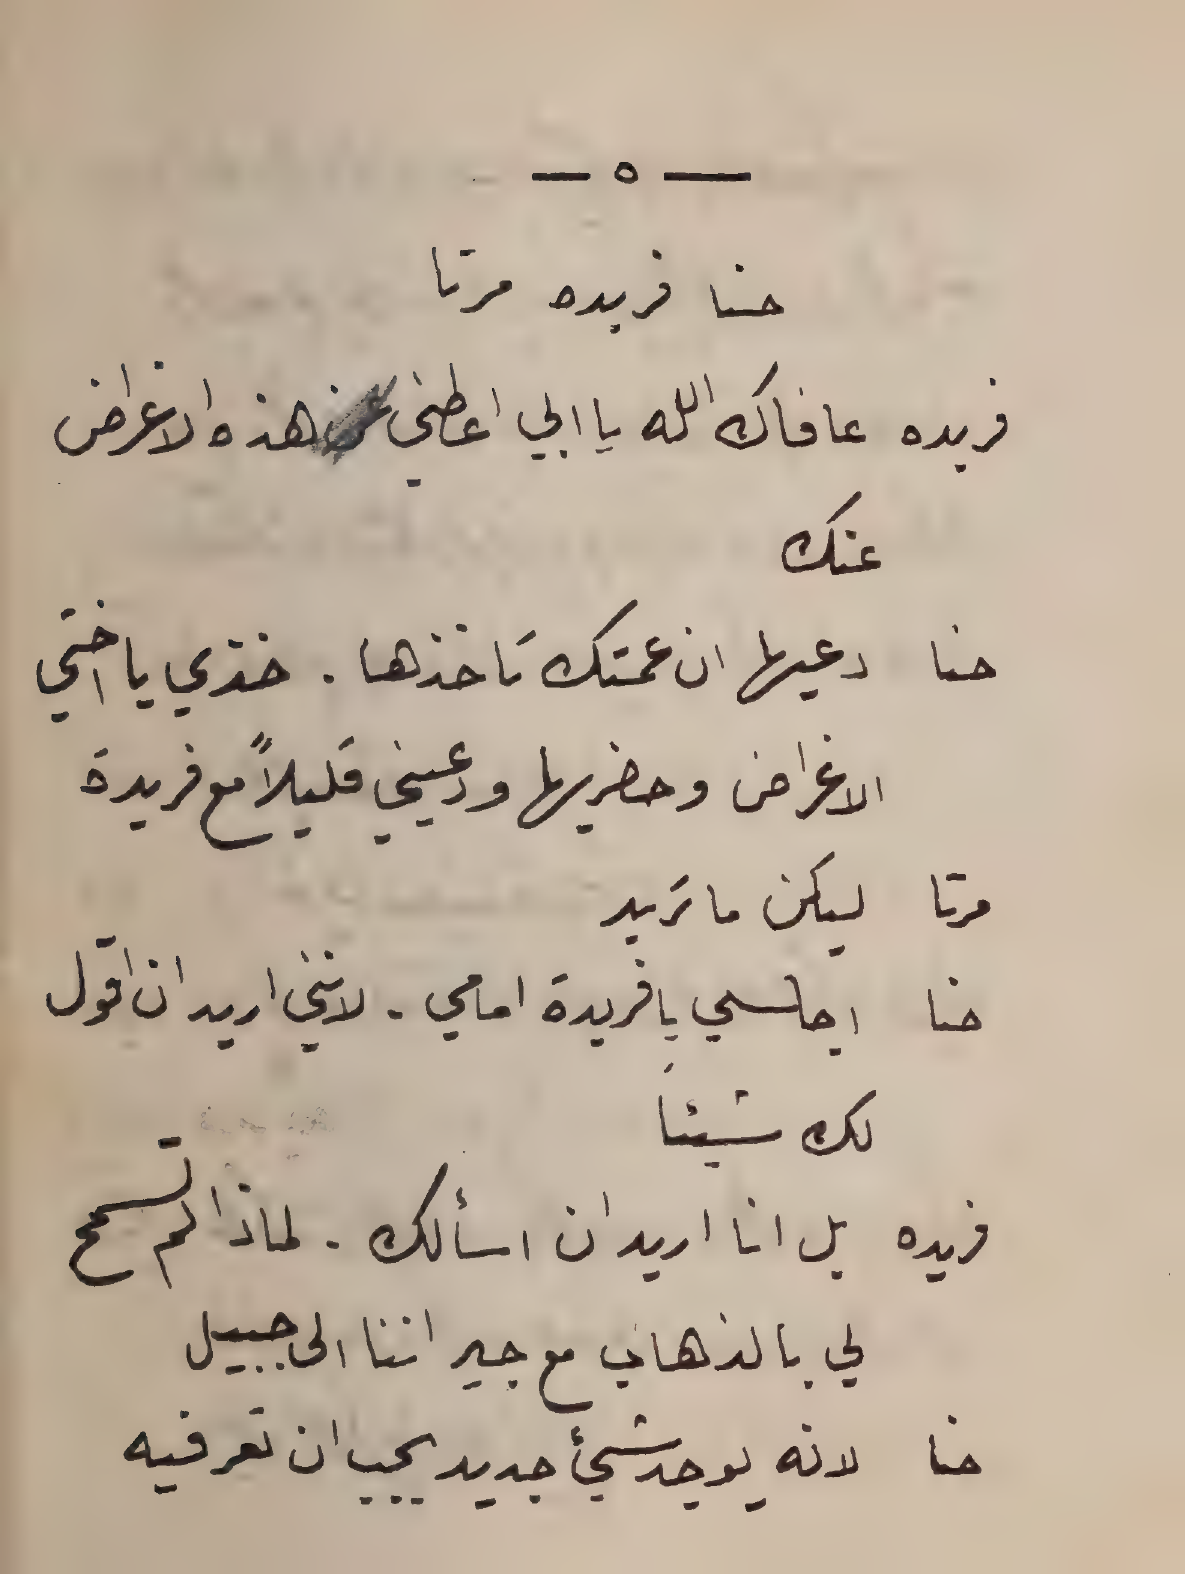 — ٥ —
حنا فريده مرتا
فريده عافاك الله يا ابي اعطني هذه الاغراض
عنك
حنا دعيها ان عمتك تاخذها . خذي يا اختي
الاغراض وحضريها ودعيني قليلاً مع فريدة
مرتا ليكن ما تريد
حنا اجلسي يا فريدة امامي . لانني اريد ان اقول
لك شيئاً
فريده بل انا اريد ان اسألك . لماذا لم تسمح
لي بالذهاب مع جيراننا الى جبيل
حنا لانه يوجد شيئ جديد يجب ان تعرفيه